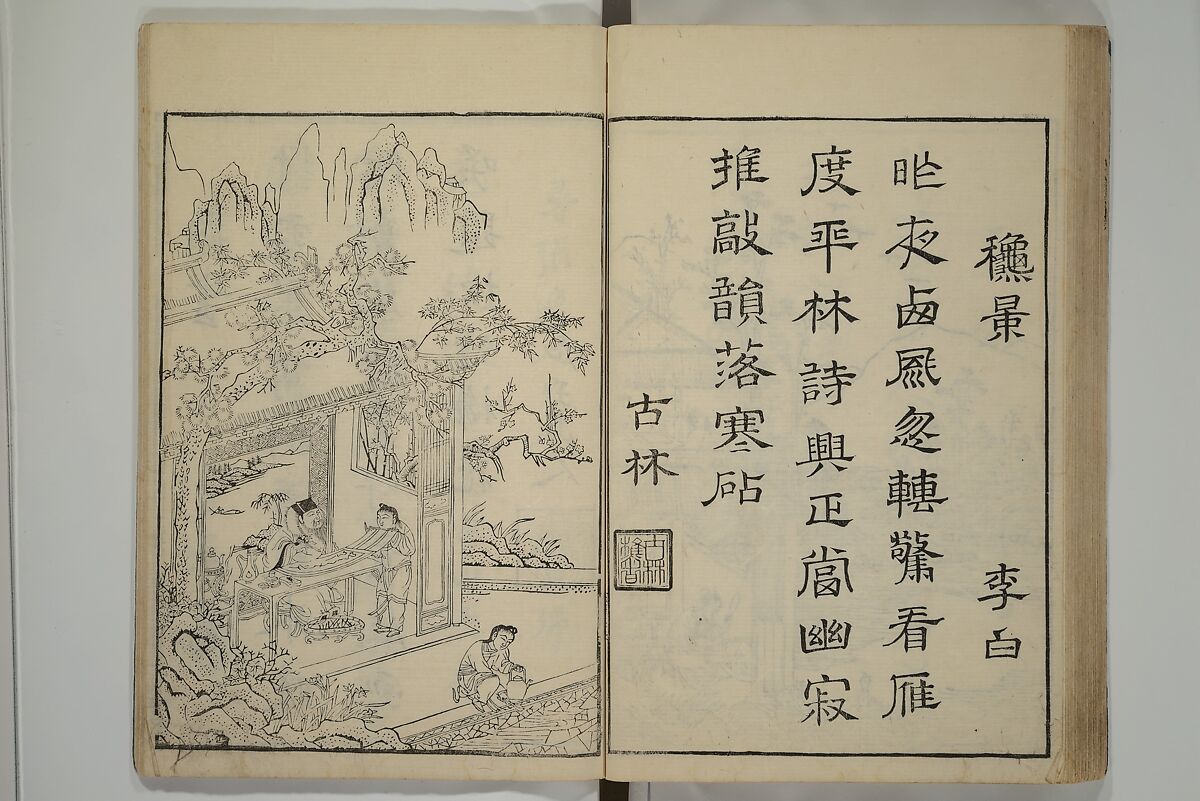 龝景 李白
昨夜卥凬忽轉驚看雁
度平林詩興正當幽寂
推敲韻落寒砧
古林